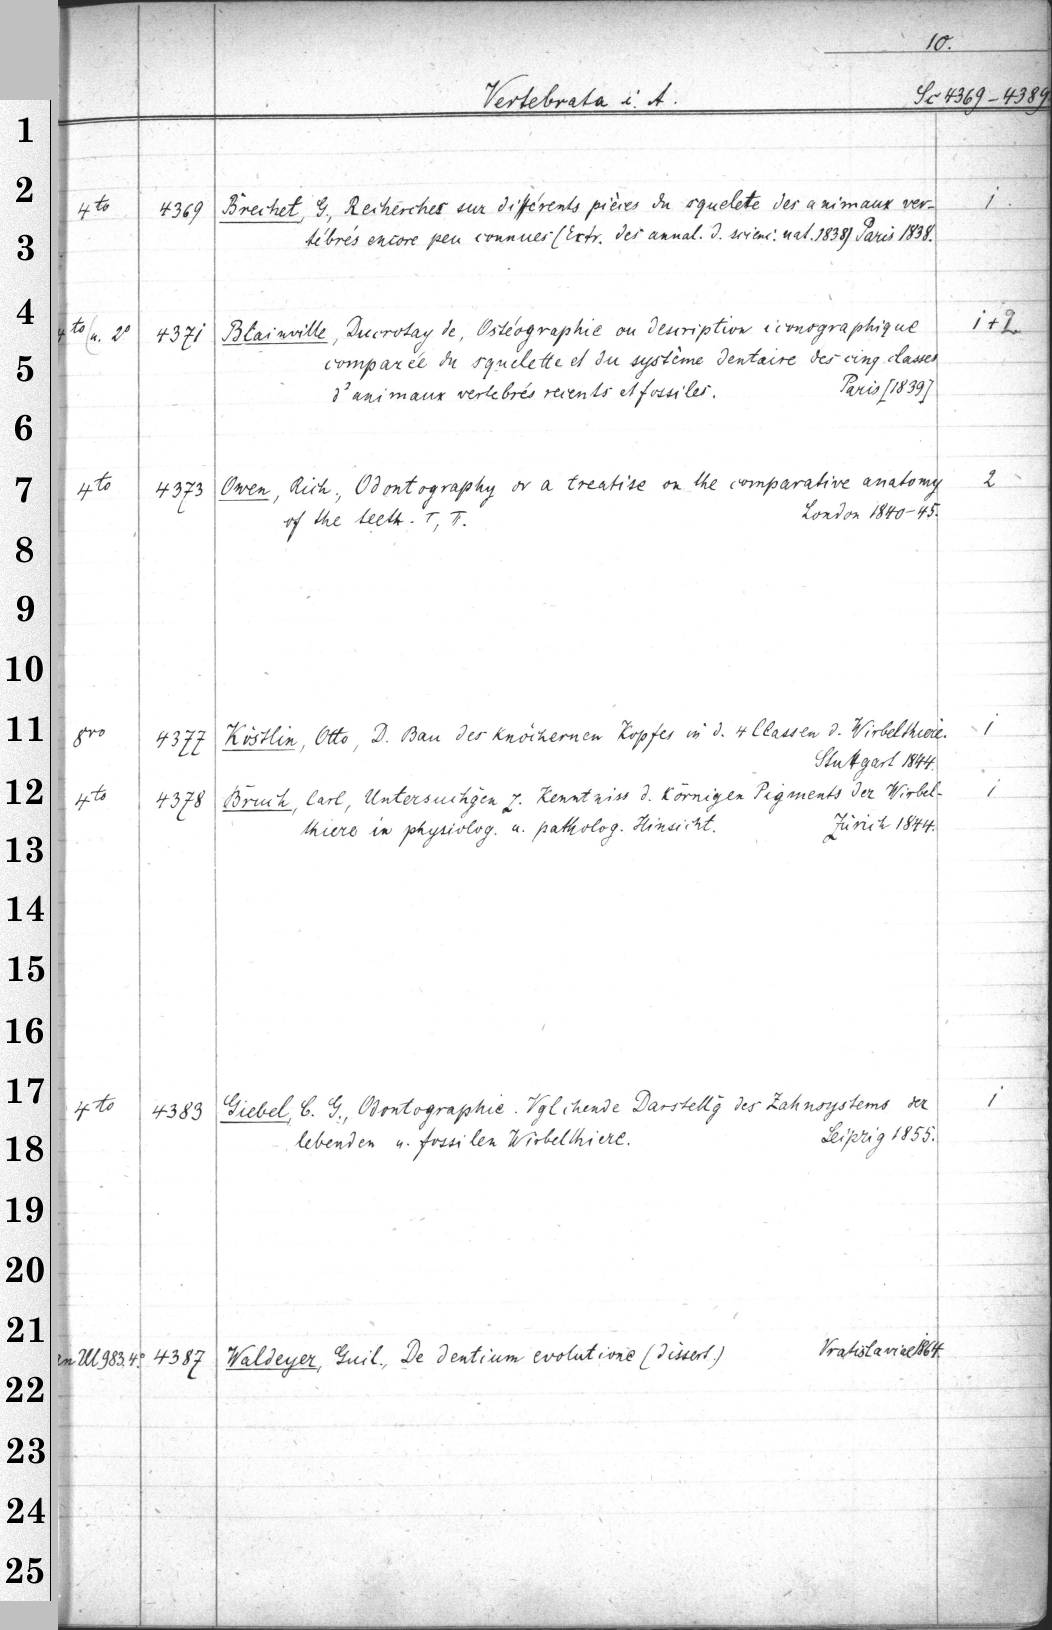 10.
Vertebrata i. A. Sc 4369-4389
4to 4369 Breschet, G., Recherches sur différents pièces du squelete des animaux ver- 1
tébrés encore peu connues (Extr. des annal. d. scienc. nat. 1838) Paris 1838.
4to (u. 2° 4371 Blainville, Ducrotay de, Ostéographie ou description iconographique 1+2
comparée du squelette et du système dentaire des cinq classes
d'animaux vertebrés recents et fossiles. Paris [1839]
4to 4373 Owen, Rich., Odontography or a treatise on the comparative anatomy 2
of the teeth. I, II. London 1840-45.
8vo 4377 Köstlin, Otto, D. Bau des knöchernen Kopfes in d. 4 Classen d. Wirbelthiere. 1
Stuttgart 1844.
4to 4378 Bruch, Carl, Untersuchgen z. Kenntniss d. körnigen Pigments der Wirbel- 1
thiere in physiolog. u. patholog. Hinsicht. Zürich 1844.
4to 4383 Giebel, C. G., Odontographie. Vglchende Darstellg des Zahnsystems der 1
lebenden u. fossilen Wirbelthiere. Leipzig 1855.
983.4° 4387 Waldeyer, Guil., De dentium evolutione (dissert.) Vratislaviae 1864.
1
2
3
4
5
6
7
8
9
10
11
12
13
14
15
16
17
18
19
20
21
22
23
24
25